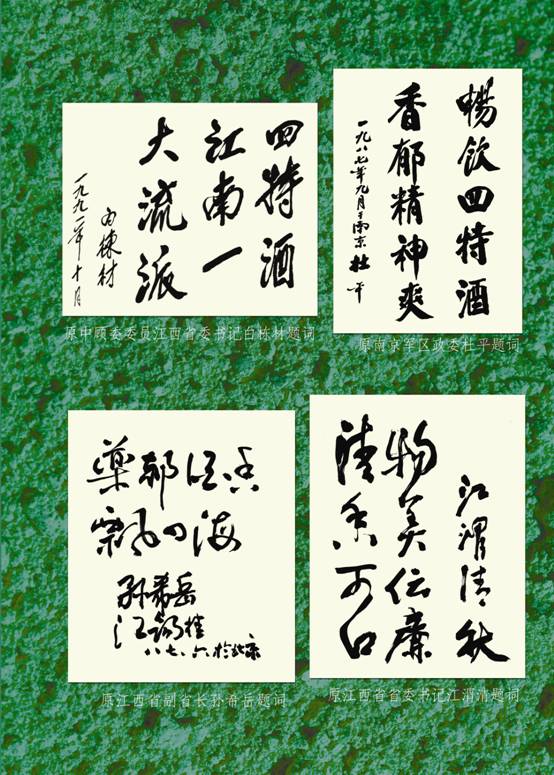 四特酒
江南一
大流派
白栋材
一九九一年十月
原中顾委委员江西省委书记白栋材题词
暢饮四特酒
香郁精神爽
一九八七年九月于南京 杜平
原南京军区政委杜平题词
药都酒香
飘四海
孙希岳
八七、六於北京
原江西省副省长孙希岳题词
江渭清
物美价廉
清香可口
原江西省省委书记江渭清题词